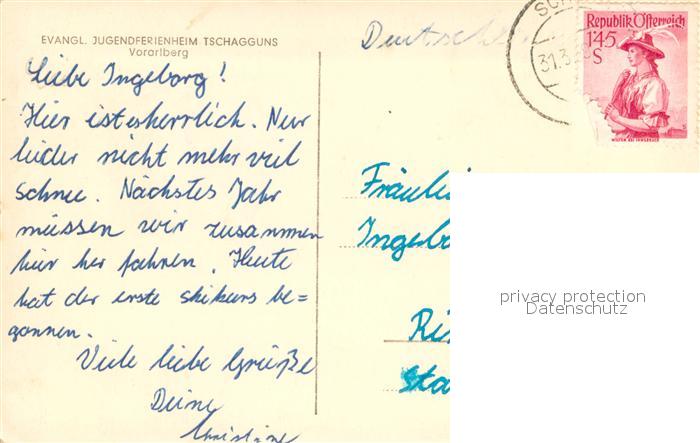 EVANGL. JUGENDFERIENHEIM TSCHAGGUNS
Vorarlberg
Liebe Ingeborg!
Hier ist es herrlich. Nur
leider nicht mehr viel
schnee. Nächstes Jahr
müssen wir zusammen
hier her fahren. Heute
hat der erste skikurs be=
gonnen.
Viele liebe Grüße
Deine
Christine
31.3.
Republik Österreich
1'45
S
WILTEN BEI INNSBRUCK
privacy protection
Datenschutz